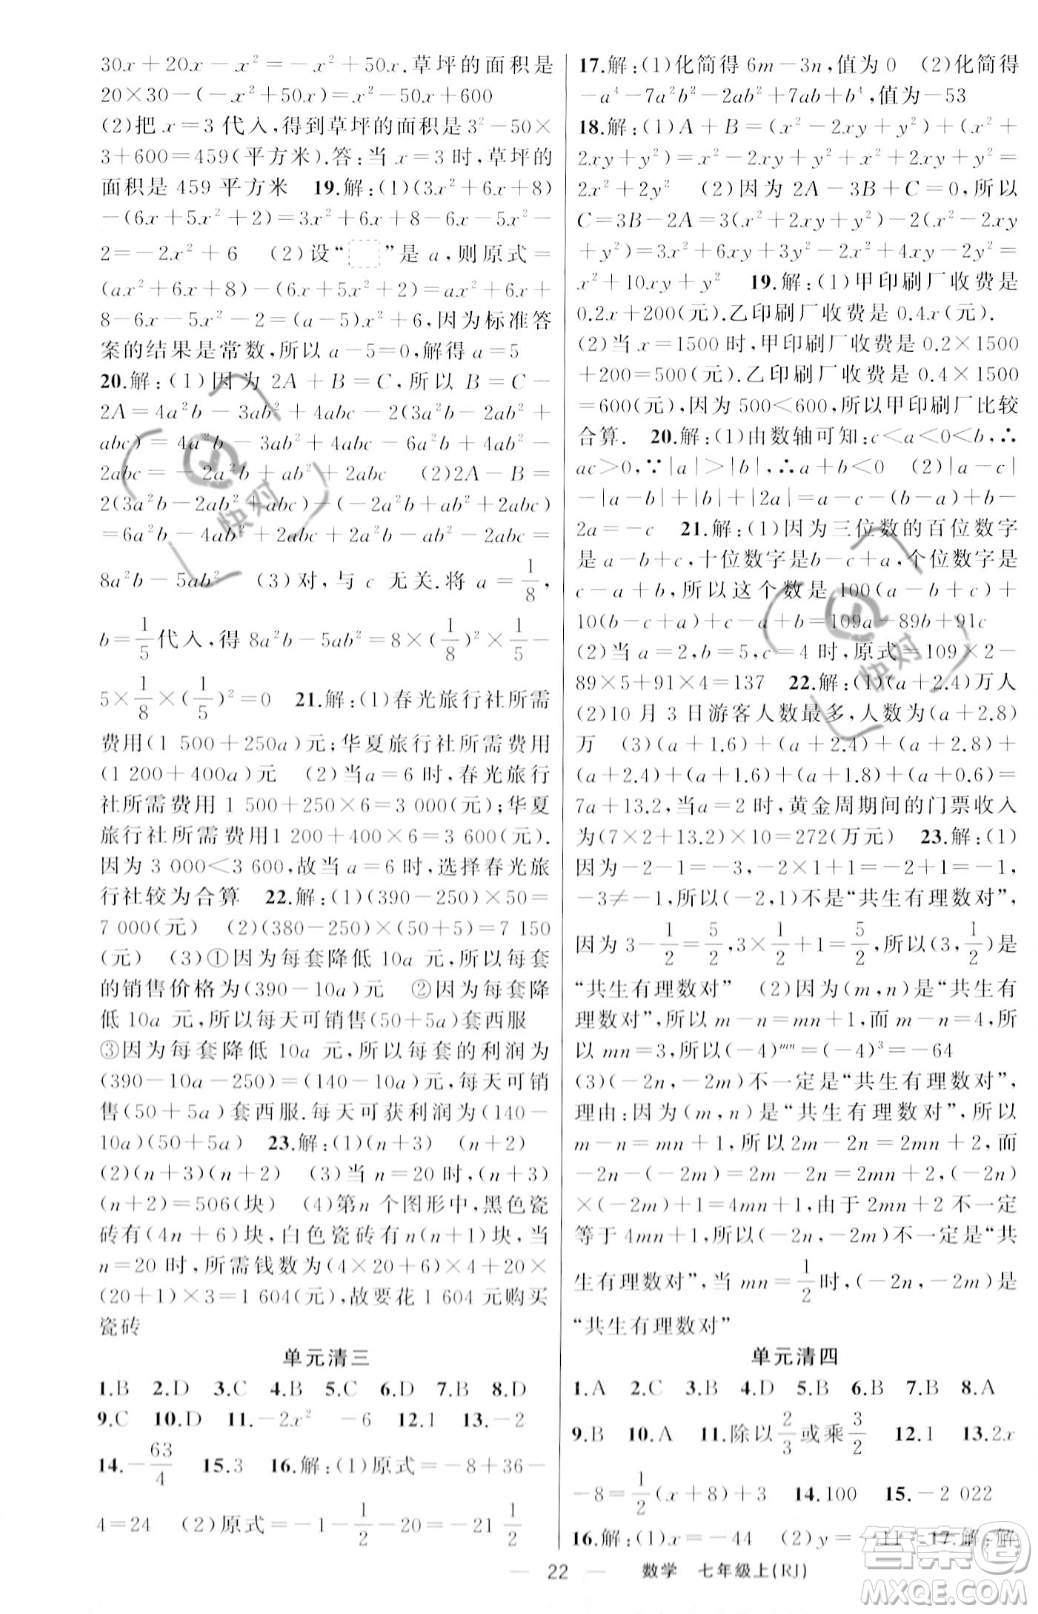 30x＋20x－x²＝－x²＋50x.草坪的面积是
20×30－(－x²＋50x)＝x²－50x＋600
(2)把 x＝3 代入，得到草坪的面积是3²－50×
3＋600＝459(平方米).答：当 x＝3 时，草坪的
面积是 459 平方米　19.解：(1)(3x²＋6x＋8)
－(6x＋5x²＋2)＝3x²＋6x＋8－6x－5x²－
2＝－2x²＋6　(2)设“　”是 a，则原式＝
(ax²＋6x＋8)－(6x＋5x²＋2)＝ax²＋6x＋
8－6x－5x²－2＝(a－5)x²＋6，因为标准答
案的结果是常数，所以 a－5＝0，解得 a＝5
20.解：(1)因为 2A＋B＝C，所以 B＝C－
2A＝4a²b－3ab²＋4abc－2(3a²b－2ab²＋
abc)＝4a²b－3ab²＋4abc－6a²b＋4ab²－
2abc＝－2a²b＋ab²＋2abc　(2)2A－B＝
2(3a²b－2ab²＋abc)－(－2a²b＋ab²＋2abc)
＝6a²b－4ab²＋2abc＋2a²b－ab²－2abc＝
8a²b－5ab²　(3)对，与 c 无关.将 a＝1/8，
b＝1/5代入，得 8a²b－5ab²＝8×(1/8)²×1/5－
5×1/8×(1/5)²＝0　21.解：(1)春光旅行社所需
费用(1 500＋250a)元；华夏旅行社所需费用
(1 200＋400a)元　(2)当 a＝6 时，春光旅行
社所需费用1 500＋250×6＝3 000(元)；华夏
旅行社所需费用1 200＋400×6＝3 600(元).
因为 3 000＜3 600，故当 a＝6 时，选择春光旅
行社较为合算　22.解：(1)(390－250)×50＝
7 000(元)　(2)(380－250)×(50＋5)＝7 150
(元)　(3)①因为每套降低 10a 元，所以每套
的销售价格为(390－10a)元　②因为每套降
低 10a 元，所以每天可销售(50＋5a)套西服
③因为每套降低 10a 元，所以每套的利润为
(390－10a－250)＝(140－10a)元，每天可销
售(50＋5a)套西服.每天可获利润为(140－
10a)(50＋5a)　23.解：(1)(n＋3)　(n＋2)
(2)(n＋3)(n＋2)　(3)当 n＝20 时，(n＋3)
(n＋2)＝506(块)　(4)第n 个图形中，黑色瓷
砖有(4n＋6)块，白色瓷砖有n(n＋1)块，当
n＝20 时，所需钱数为(4×20＋6)×4＋20×
(20＋1)×3＝1 604(元)，故要花 1 604元购买
瓷砖
单元清三
1.B　2.D　3.C　4.D　5.C　6.A　7.B　8.D
9.C　10.D　11.－2x²　－5　12.1　13.－2
14.－63/4　15.3　16.解：(1)原式＝－8＋36－
4＝24　(2)原式＝－1－1/2－20＝－21 1/2
17.解：(1)化简得 6m－3n，值为 0　(2)化简得
－a⁴－7a²b²－2ab²＋7ab＋b⁴，值为－53
18.解：(1)A＋B＝(x²－2xy＋y²)＋(x²＋2xy＋y²)＝
2x²＋2y²　(2)因为 2A－3B＋C＝0，所以
C＝3B－2A＝3(x²＋2xy＋y²)－2(x²－2xy
＋y²)＝3x²＋6xy＋3y²－2x²＋4xy－2y²＝
x²＋10xy＋y²　19.解：(1)甲印刷厂收费是
0.2x＋200(元).乙印刷厂收费是 0.4x(元).
(2)当 x＝1500 时，甲印刷厂收费是 0.2×1500
＋200＝500(元).乙印刷厂收费是 0.4×1500
＝600(元)，因为 500＜600，所以甲印刷厂比较
合算.　20.解：(1)由数轴可知：c＜a＜0＜b，∴
ac＞0，∵|a|＞|b|，∴a＋b＜0　(2)|a－c|－
|a＋b|＋|2a|＝a－c－(－b－a)＋b－
2a＝－c　21.解：(1)因为三位数的百位数字
是 a－b＋c，十位数字是b－c＋a，个位数字是
c－a＋b，所以这个数是 100(a－b＋c)＋
10(b－c＋a)＋c－a＋b＝109a－89b＋91c
(2)当 a＝2，b＝5，c＝4 时，原式＝109×2－
89×5＋91×4＝137　22.解：(1)(a＋2.4)万人
(2)10 月 3 日游客人数最多，人数为(a＋2.8)
万　(3)(a＋1.6)＋(a＋2.4)＋(a＋2.8)＋
(a＋2.4)＋(a＋1.6)＋(a＋1.8)＋(a＋0.6)＝
7a＋13.2，当 a＝2 时，黄金周期间的门票收入
为(7×2＋13.2)×10＝272(万元)　23.解：(1)
因为－2－1＝－3，－2×1＋1＝－2＋1＝－1，
－3≠－1，所以(－2，1)不是“共生有理数对”，
因为 3－1/2＝5/2，3×1/2＋1＝5/2，所以(3，1/2)是
“共生有理数对”　(2)因为(m，n)是“共生有
理数对”，所以 m－n＝mn＋1，而 m－n＝4，所
以 mn＝3，所以(－4)ᵐⁿ＝(－4)³＝－64
(3)(－2n，－2m)不一定是“共生有理数对”，
理由：因为(m，n)是“共生有理数对”，所以
m－n＝mn＋1，所以 2m－2n＝2mn＋2，而
－2n－(－2m)＝－2n＋2m＝2mn＋2，(－2n)
×(－2m)＋1＝4mn＋1，由于 2mn＋2 不一定
等于4mn＋1，所以(－2n，－2m)不一定是“共
生有理数对”，当 mn＝1/2时，(－2n，－2m)是
“共生有理数对”
单元清四
1.A　2.C　3.D　4.B　5.D　6.D　7.B　8.A
9.B　10.A　11.除以2/3或乘3/2　12.1　13.2x
－8＝1/2(x＋8)＋3　14.100　15.－2 022
16.解：(1)x＝－44　(2)y＝－11　17.解：
22　数学　七年级上(RJ)
快对
快对
答案圈
MXQE.COM